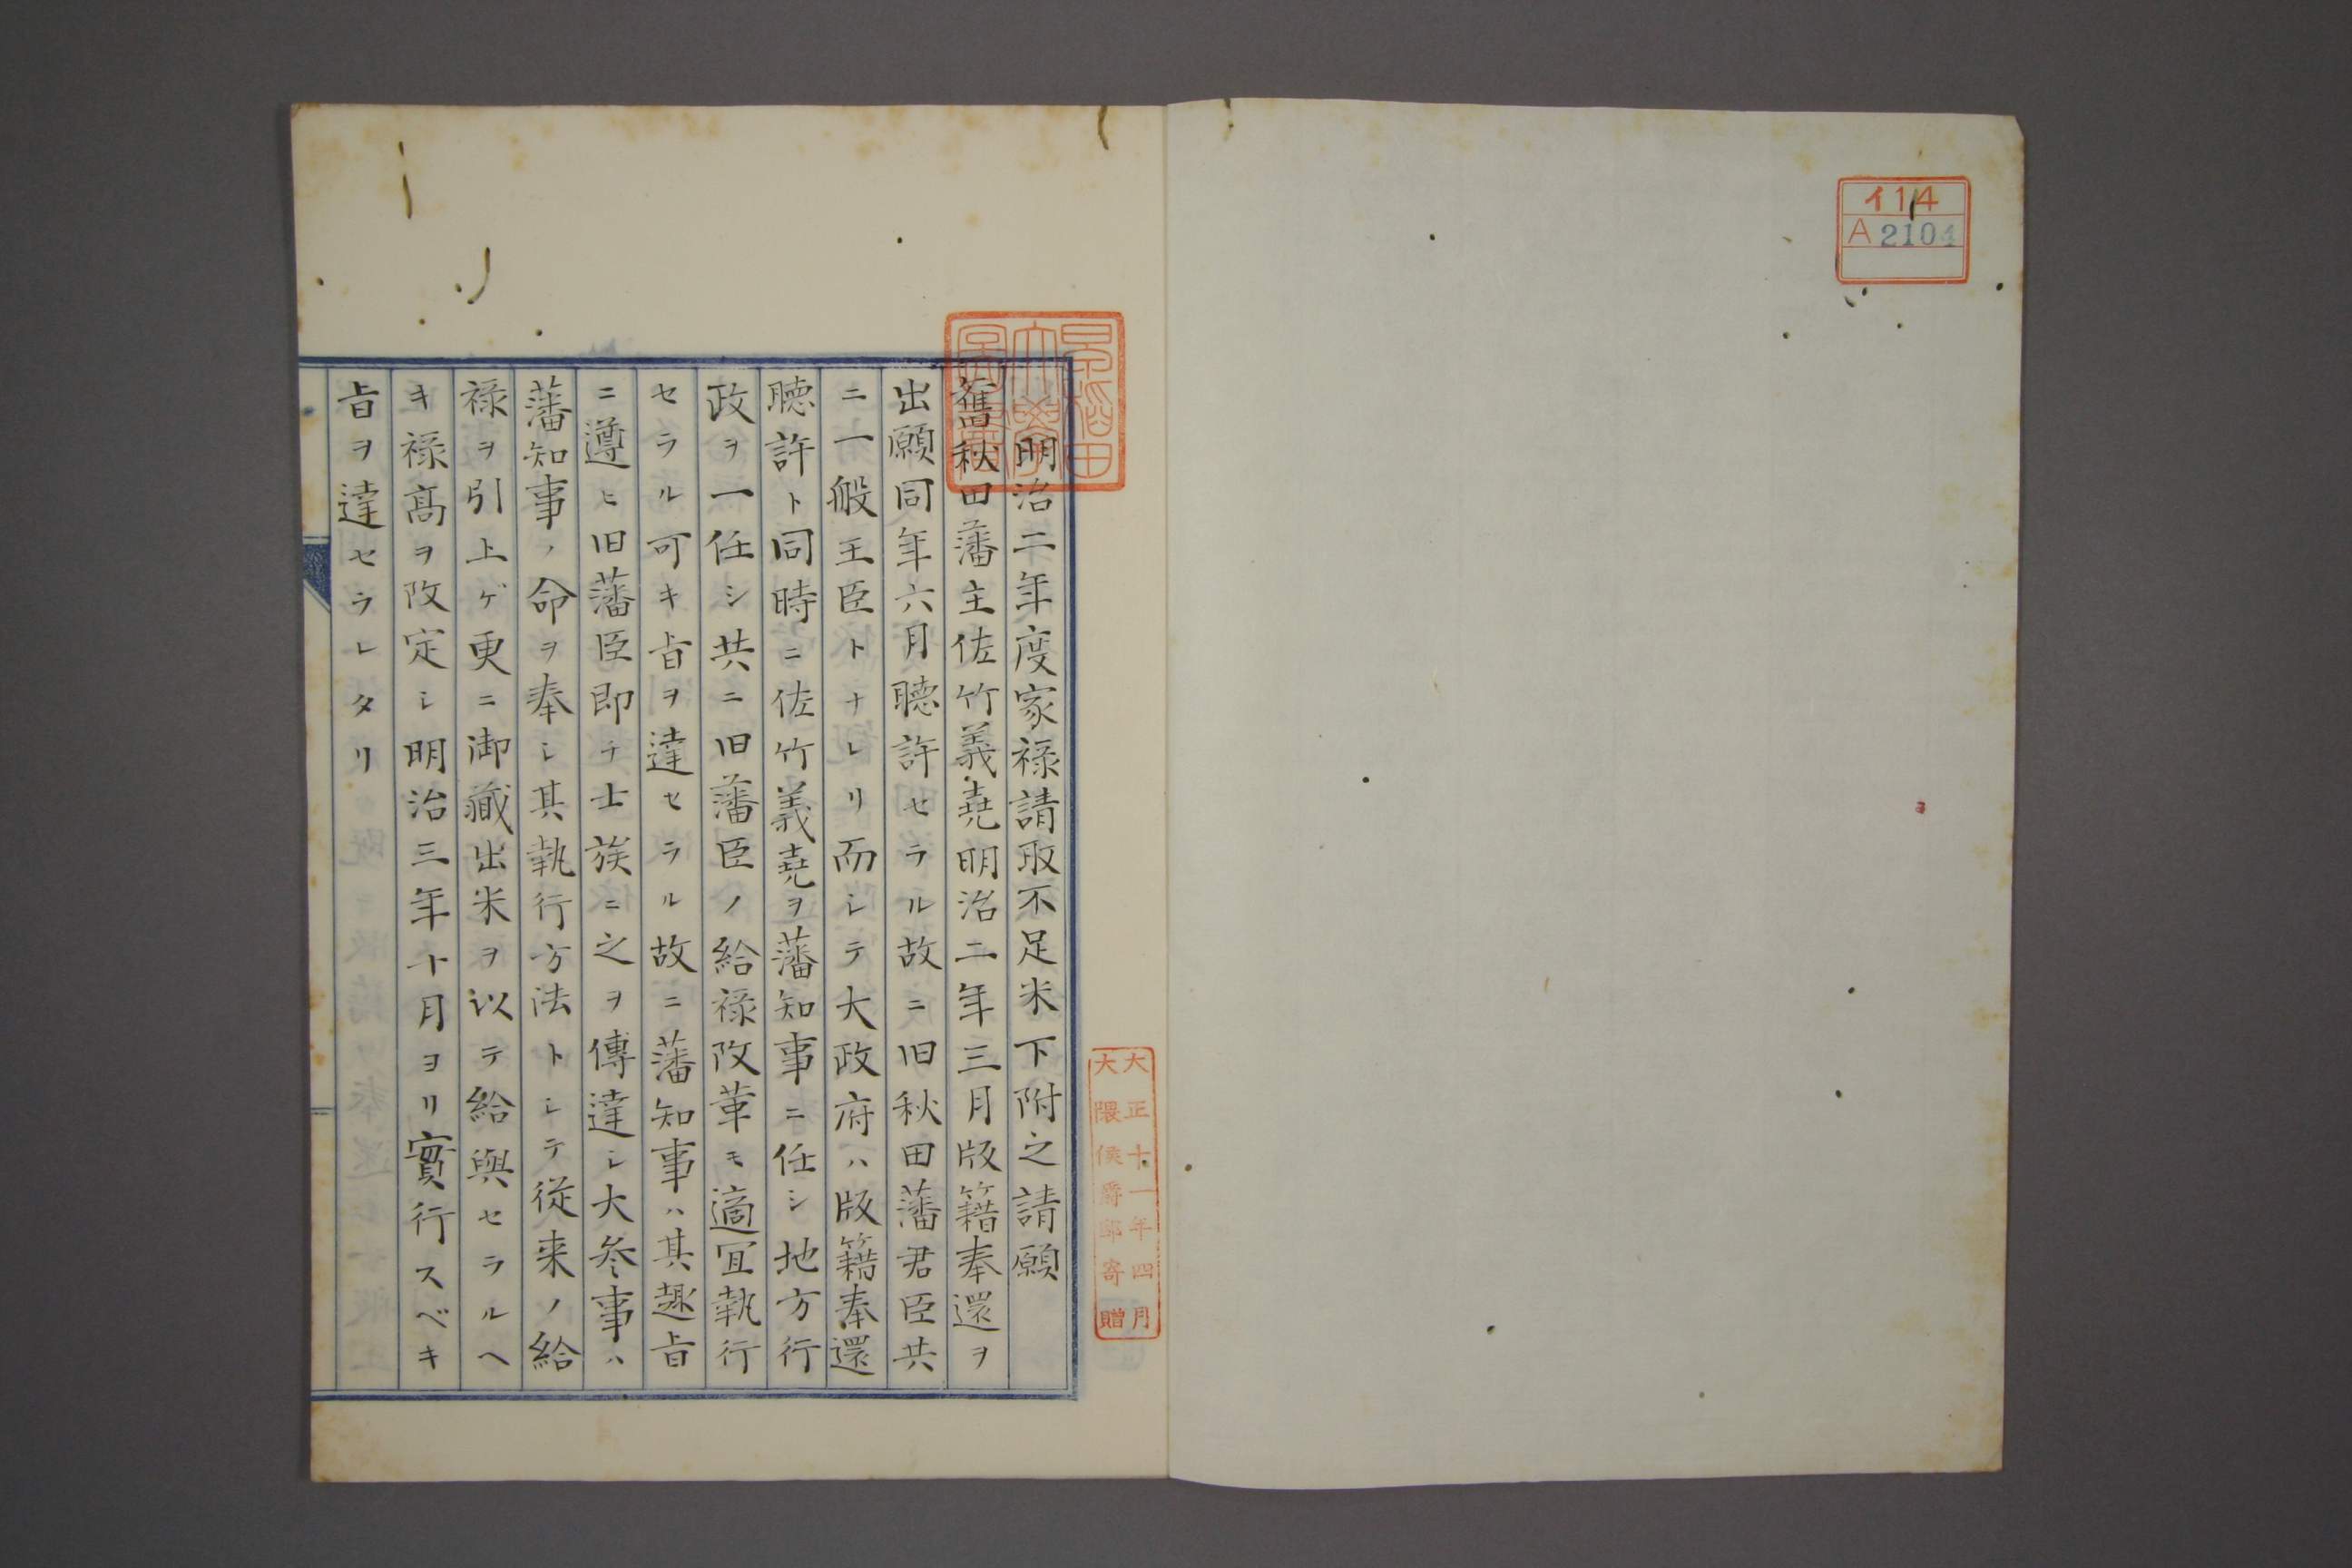 イ14
A2104
大正十一年四月
大隈侯爵邸寄贈
早稲田
大學
圖書
明治二年度家祿請取不足米下附之請願
舊秋田藩主佐竹義堯明治二年三月版籍奉還ヲ
出願同年六月聴許セラル故ニ旧秋田藩君臣共
ニ一般王臣トナレリ而シテ大政府ハ版籍奉還
聴許ト同時ニ佐竹義堯ヲ藩知事ニ任シ地方行
政ヲ一任シ共ニ旧藩臣ノ給祿改革モ適宜執行
セラル可キ旨ヲ達セラル故ニ藩知事ハ其趣旨
ニ遵ヒ旧藩臣即チ士族ニ之ヲ傳達シ大参事ハ
藩知事ノ命ヲ奉シ其執行方法トシテ従来ノ給
祿ヲ引上ゲ更ニ御藏出米ヲ以テ給與セラルヘ
キ祿髙ヲ改定シ明治三年十月ヨリ實行スベキ
旨ヲ達セラレタリ